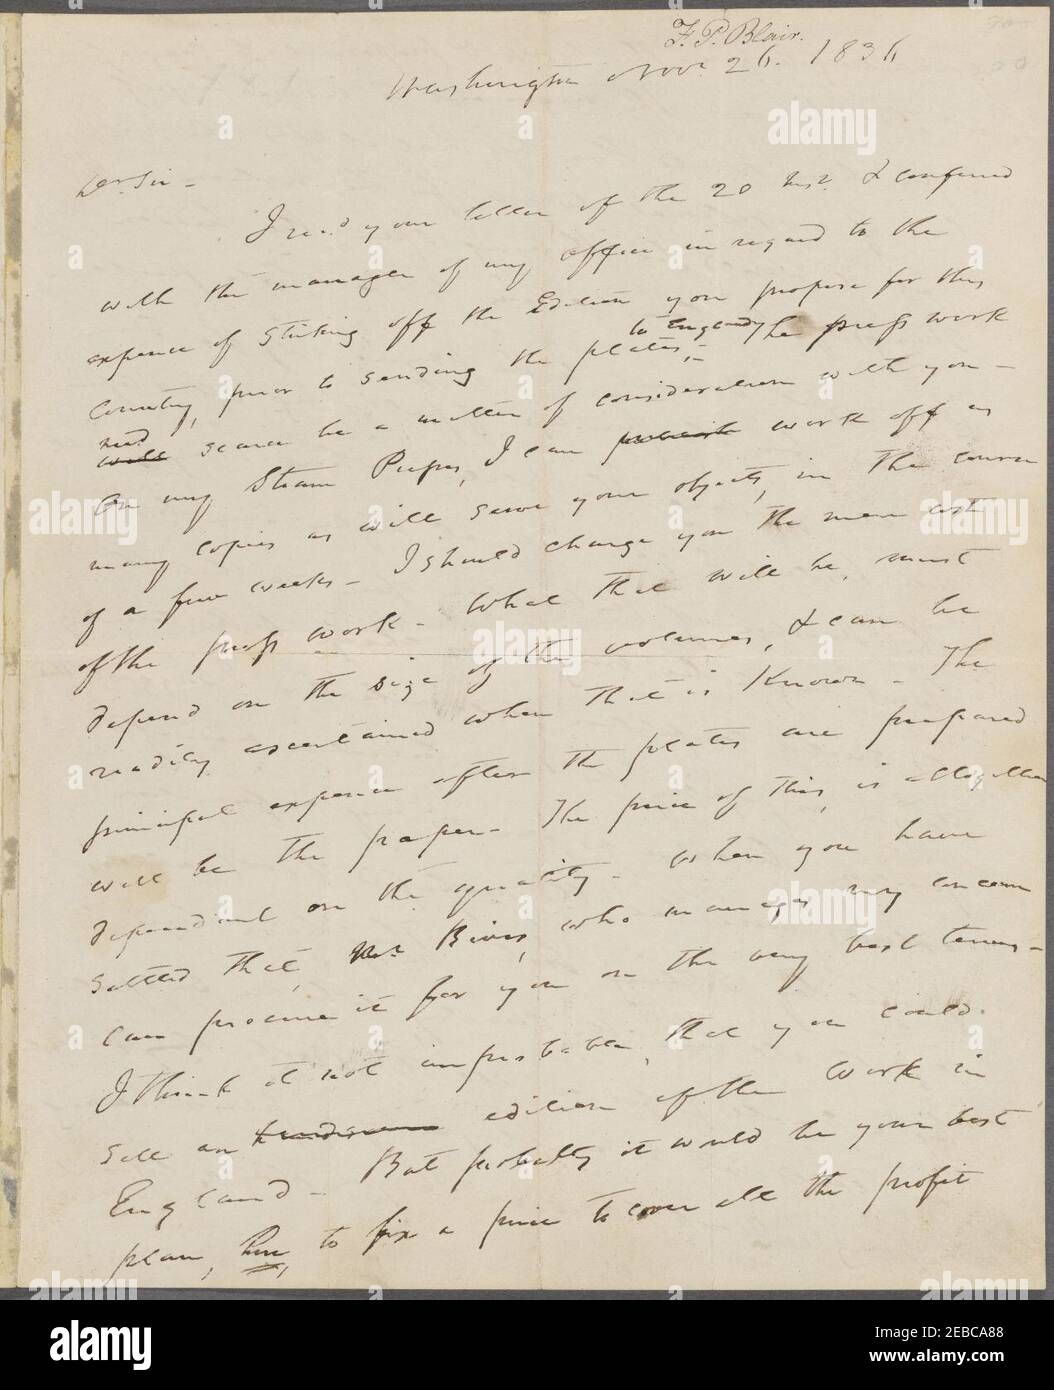 F. P. Blair.
Washington Nov. 26. 1836
Dr Sir –
I recd your letter of the 20 Inst. & conferred
with the manager of my office in regard to the
expense of Striking off the Edition you propose for this
Country, prior to sending the plates, to England, – The press work
need scarce be a matter of consideration with you –
On my Steam Press, I can work off as
many copies as will serve your objects, in the course
of a few weeks – I should charge you the mere cost
of the press work – What that will be, must
depend on the size of the volumes, & can be
readily ascertained when that is Known – The
principal expense after the plates are prepared
will be the paper – The price of this, is altogether
dependent on the quality – When you have
settled that, Mr. Rives, who manages my concern
can procure it for you on the very best terms –
I think it not improbable, that you could.
sell an edition of the work in
England – But probably it would be your best
plan, here, to fix a price to cover all the profit
alamy
alamy
alamy
alamy
alamy
alamy
Image ID: 2EBCA88
www.alamy.com